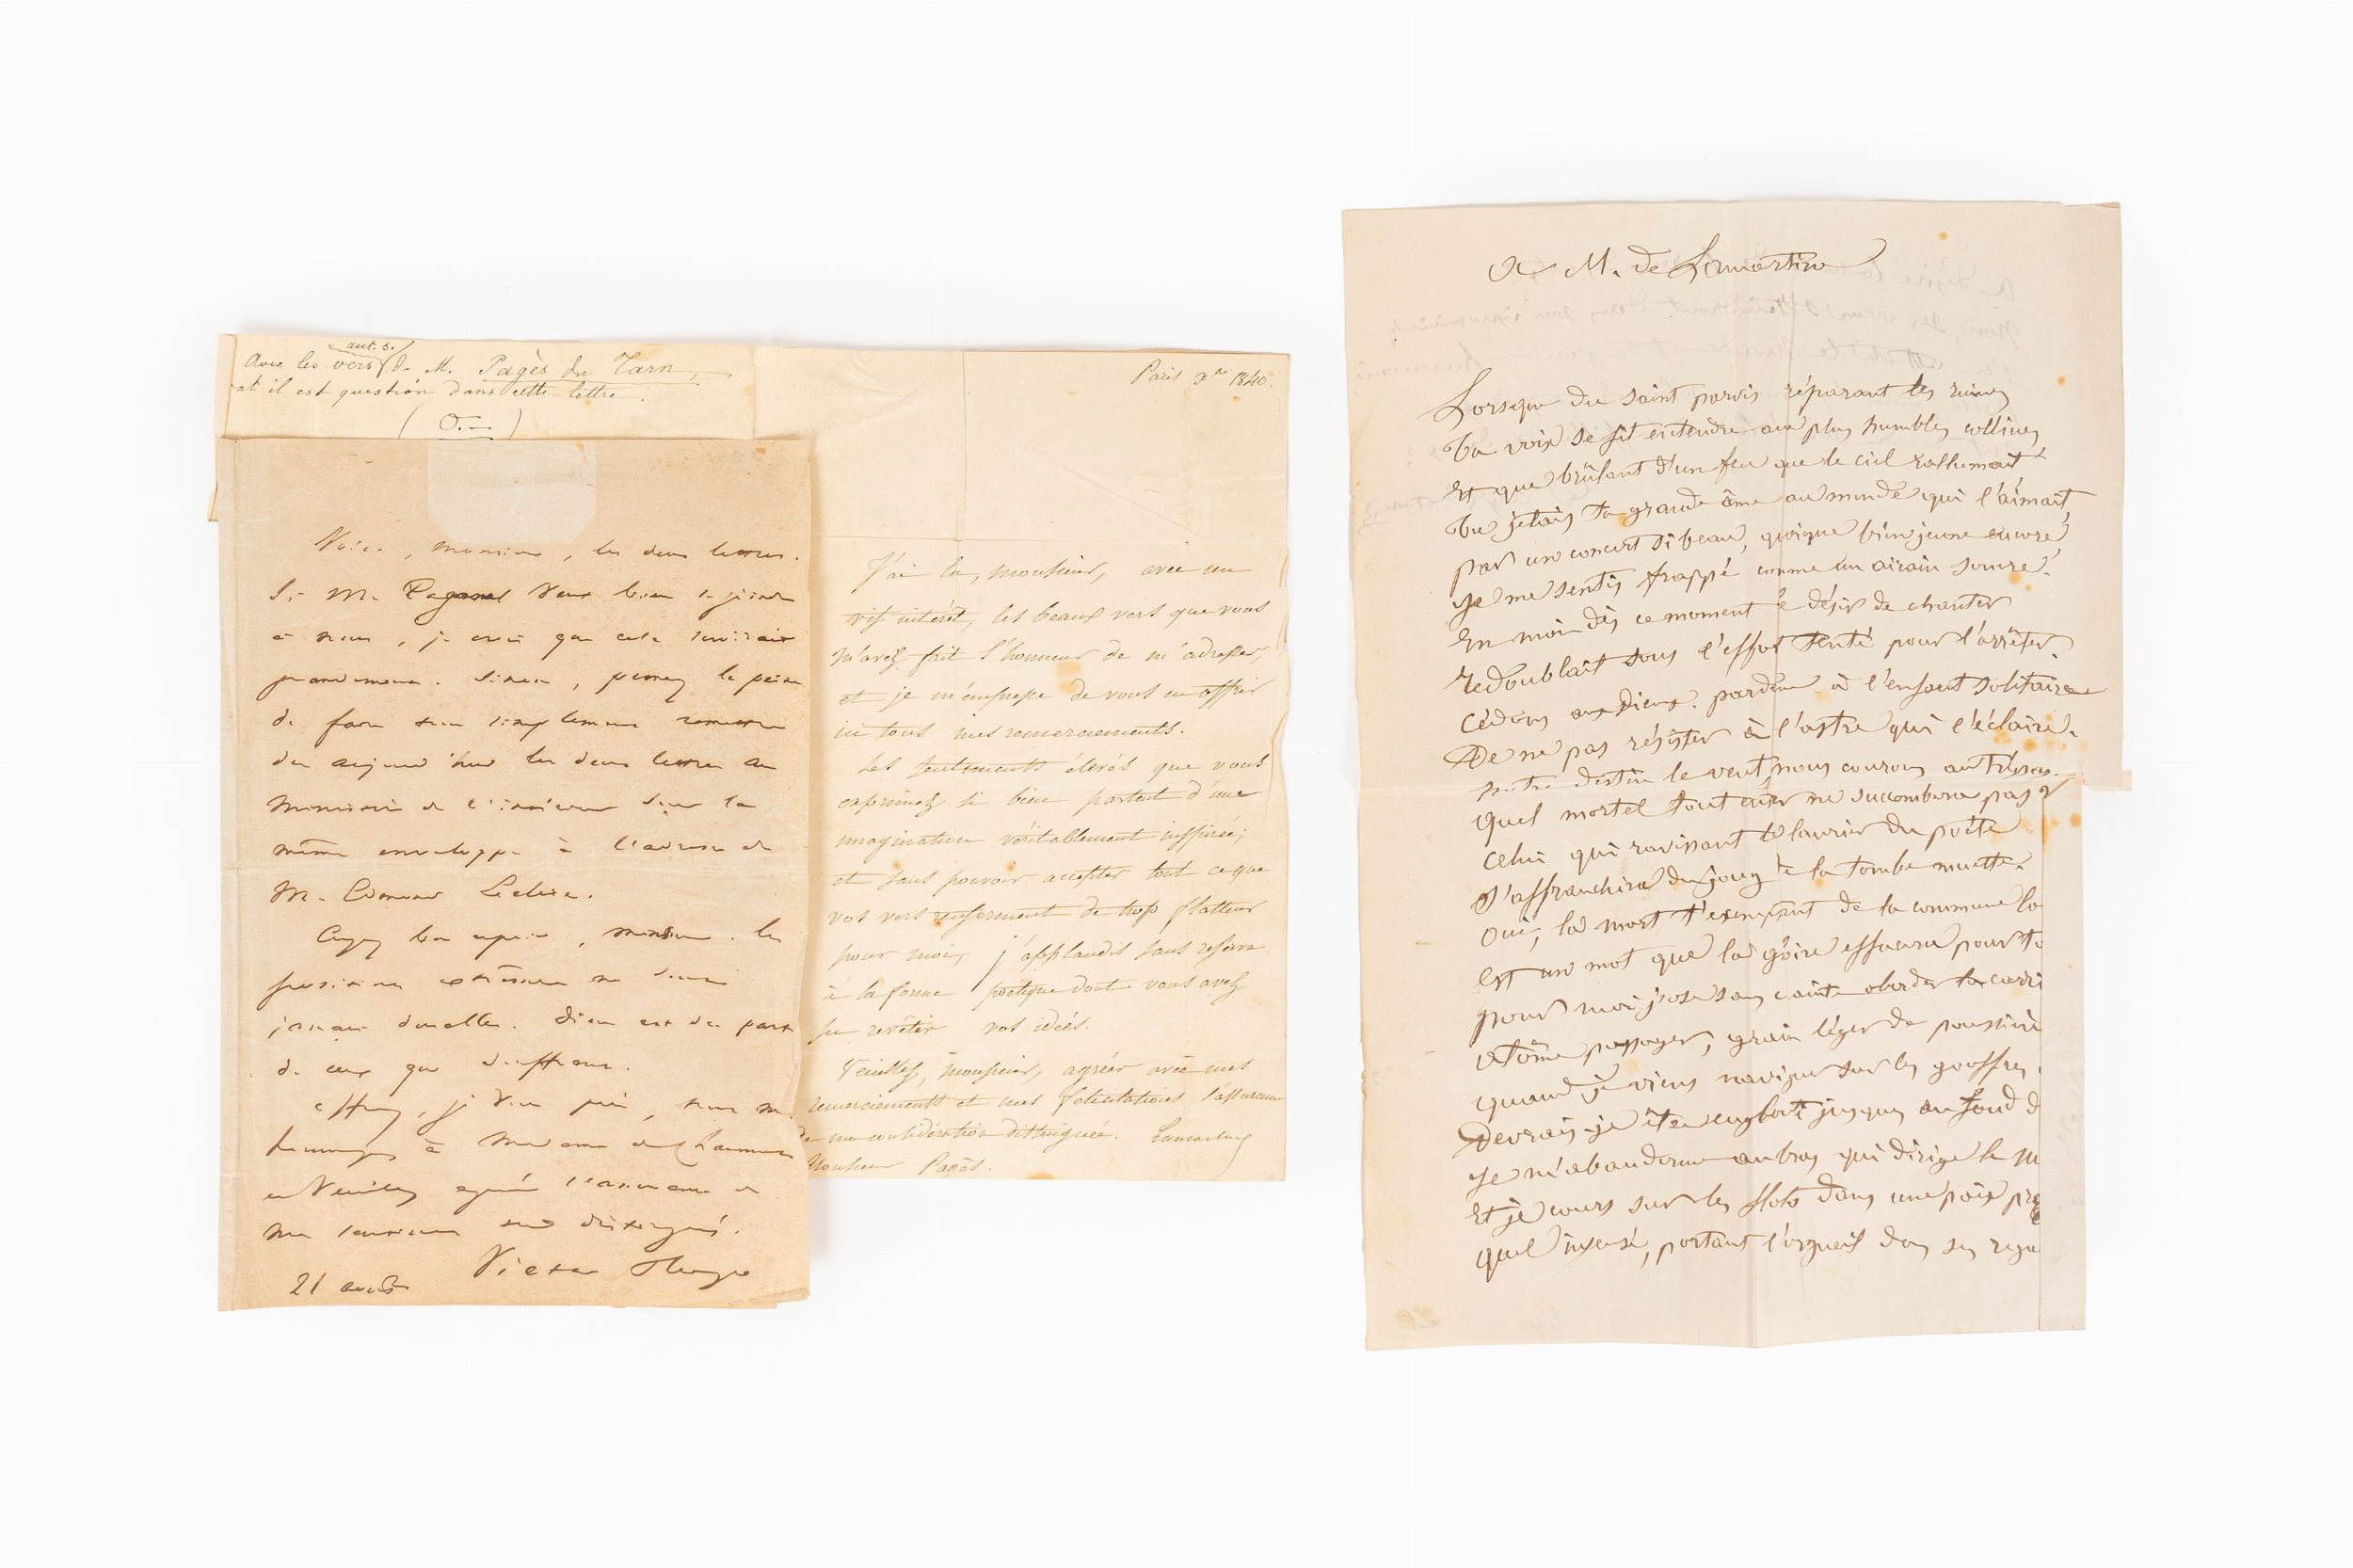 aut. s.
Avec les vers de M. Pagès du Tarn,
il est question dans cette lettre.
Voici, monsieur, les deux lettres.
Si M. Paganel veut bien se joindre
à nous, je crois que cela servirait
grandement. Sinon, prenez la peine
de faire tout simplement remettre
dès aujourd'hui les deux lettres au
ministère de l'intérieur sous la
même enveloppe à l'adresse de
M. Edmond Leclerc.
Ayez bon espoir, monsieur. les
positions extrêmes ne sont
jamais durables. Dieu est du parti
de ceux qui souffrent.
Offrez, je vous prie, tous mes
hommages à Madame de
et Veuillez agréer l'assurance de
mes sentiments très distingués.
Victor Hugo
21 août
Paris xbre 1840.
J'ai lu, monsieur, avec un
vif intérêt, les beaux vers que vous
m'avez fait l'honneur de m'adresser,
et je m'empresse de vous en offrir
ici tous mes remerciements.
Les sentiments élevés que vous
exprimez si bien partent d'une
imagination véritablement inspirée;
et sans pouvoir accepter tout ce que
vos vers renferment de trop flatteur
pour moi, j'applaudis sans reserve
à la forme poëtique dont vous avez
su revêtir vos idées.
Veuillez, monsieur, agréer avec mes
remerciements et mes félicitations l'assurance
de ma considération distinguée. Lamartine
Monsieur Pagès.
A M. de Lamartine
Lorsque du saint parvis réparant les ruines
Ta voix se fit entendre aux plus humbles collines
Et que brûlant d'un feu que le ciel rallumait
Tu jetais ta grande âme au monde qui l'aimait,
par un concert si beau, quoique bien jeune encore,
Je me sentis frappé comme un airain sonore.
En moi dès ce moment le désir de chanter
Redoublait sous l'effort tenté pour l'arrêter.
Cédons aux Dieux. pardonne à l'enfant solitaire
De ne pas résister à l'astre qui l'éclaire.
notre destin le veut, nous courons au trépas.
quel mortel tout entier ne succombera pas ?
Celui qui ravissant le laurier du poète
S'affranchira du joug de la tombe muette.
Oui, la mort t'exemptant de la commune lo
Est un mot que la gloire effacera pour t
pour moi j'ose sans crainte aborder ta carri
atôme passager, grain léger de poussière
quand je viens naviguer sur les gouffres
Devrais-je être englouti jusques au fond d
Je m'abandonne au bras qui dirige le m
Et je cours sur les flots dans une paix pr
quel insensé, portant l'orgueil dans ses rega